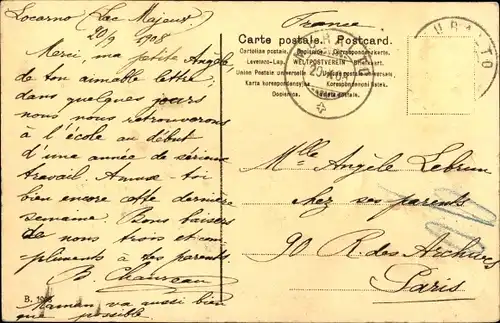 Locarno (Lac Majeur)
20/9 1908
Merci, ma petite Angèle,
de ton aimable lettre,
dans quelques jours
nous nous retrouverons
à l'école au début
d'une année de sérieux
travail. Amuse-toi
bien encore cette dernière
semaine. Bons baisers
de nous trois et com
pliments à tes parents.
B. Chauveau
Maman va aussi bien
que possible
B. 1908
France
Carte postale. Postcard.
WELTPOSTVEREIN
Union Postale universelle
MURALTO
URALTO
Mlle Angèle Lebrun
chez ses parents
90 R. des Archives
Paris